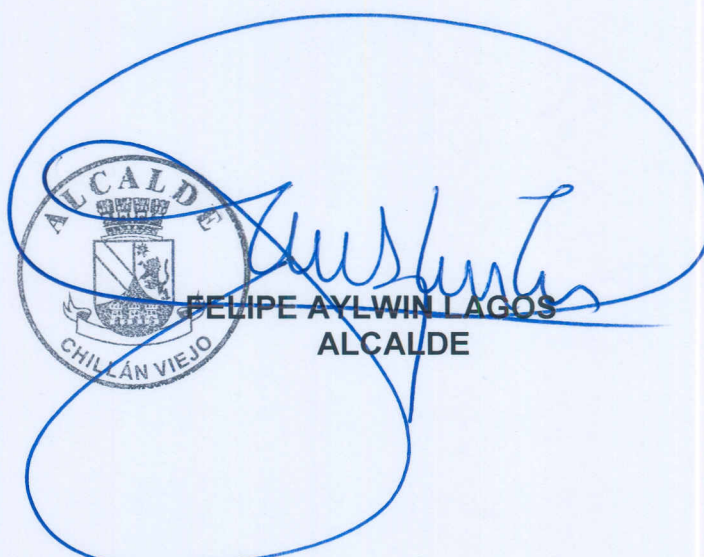 ALCALDE
CHILLÁN VIEJO
FELIPE AYLWIN LAGOS
ALCALDE